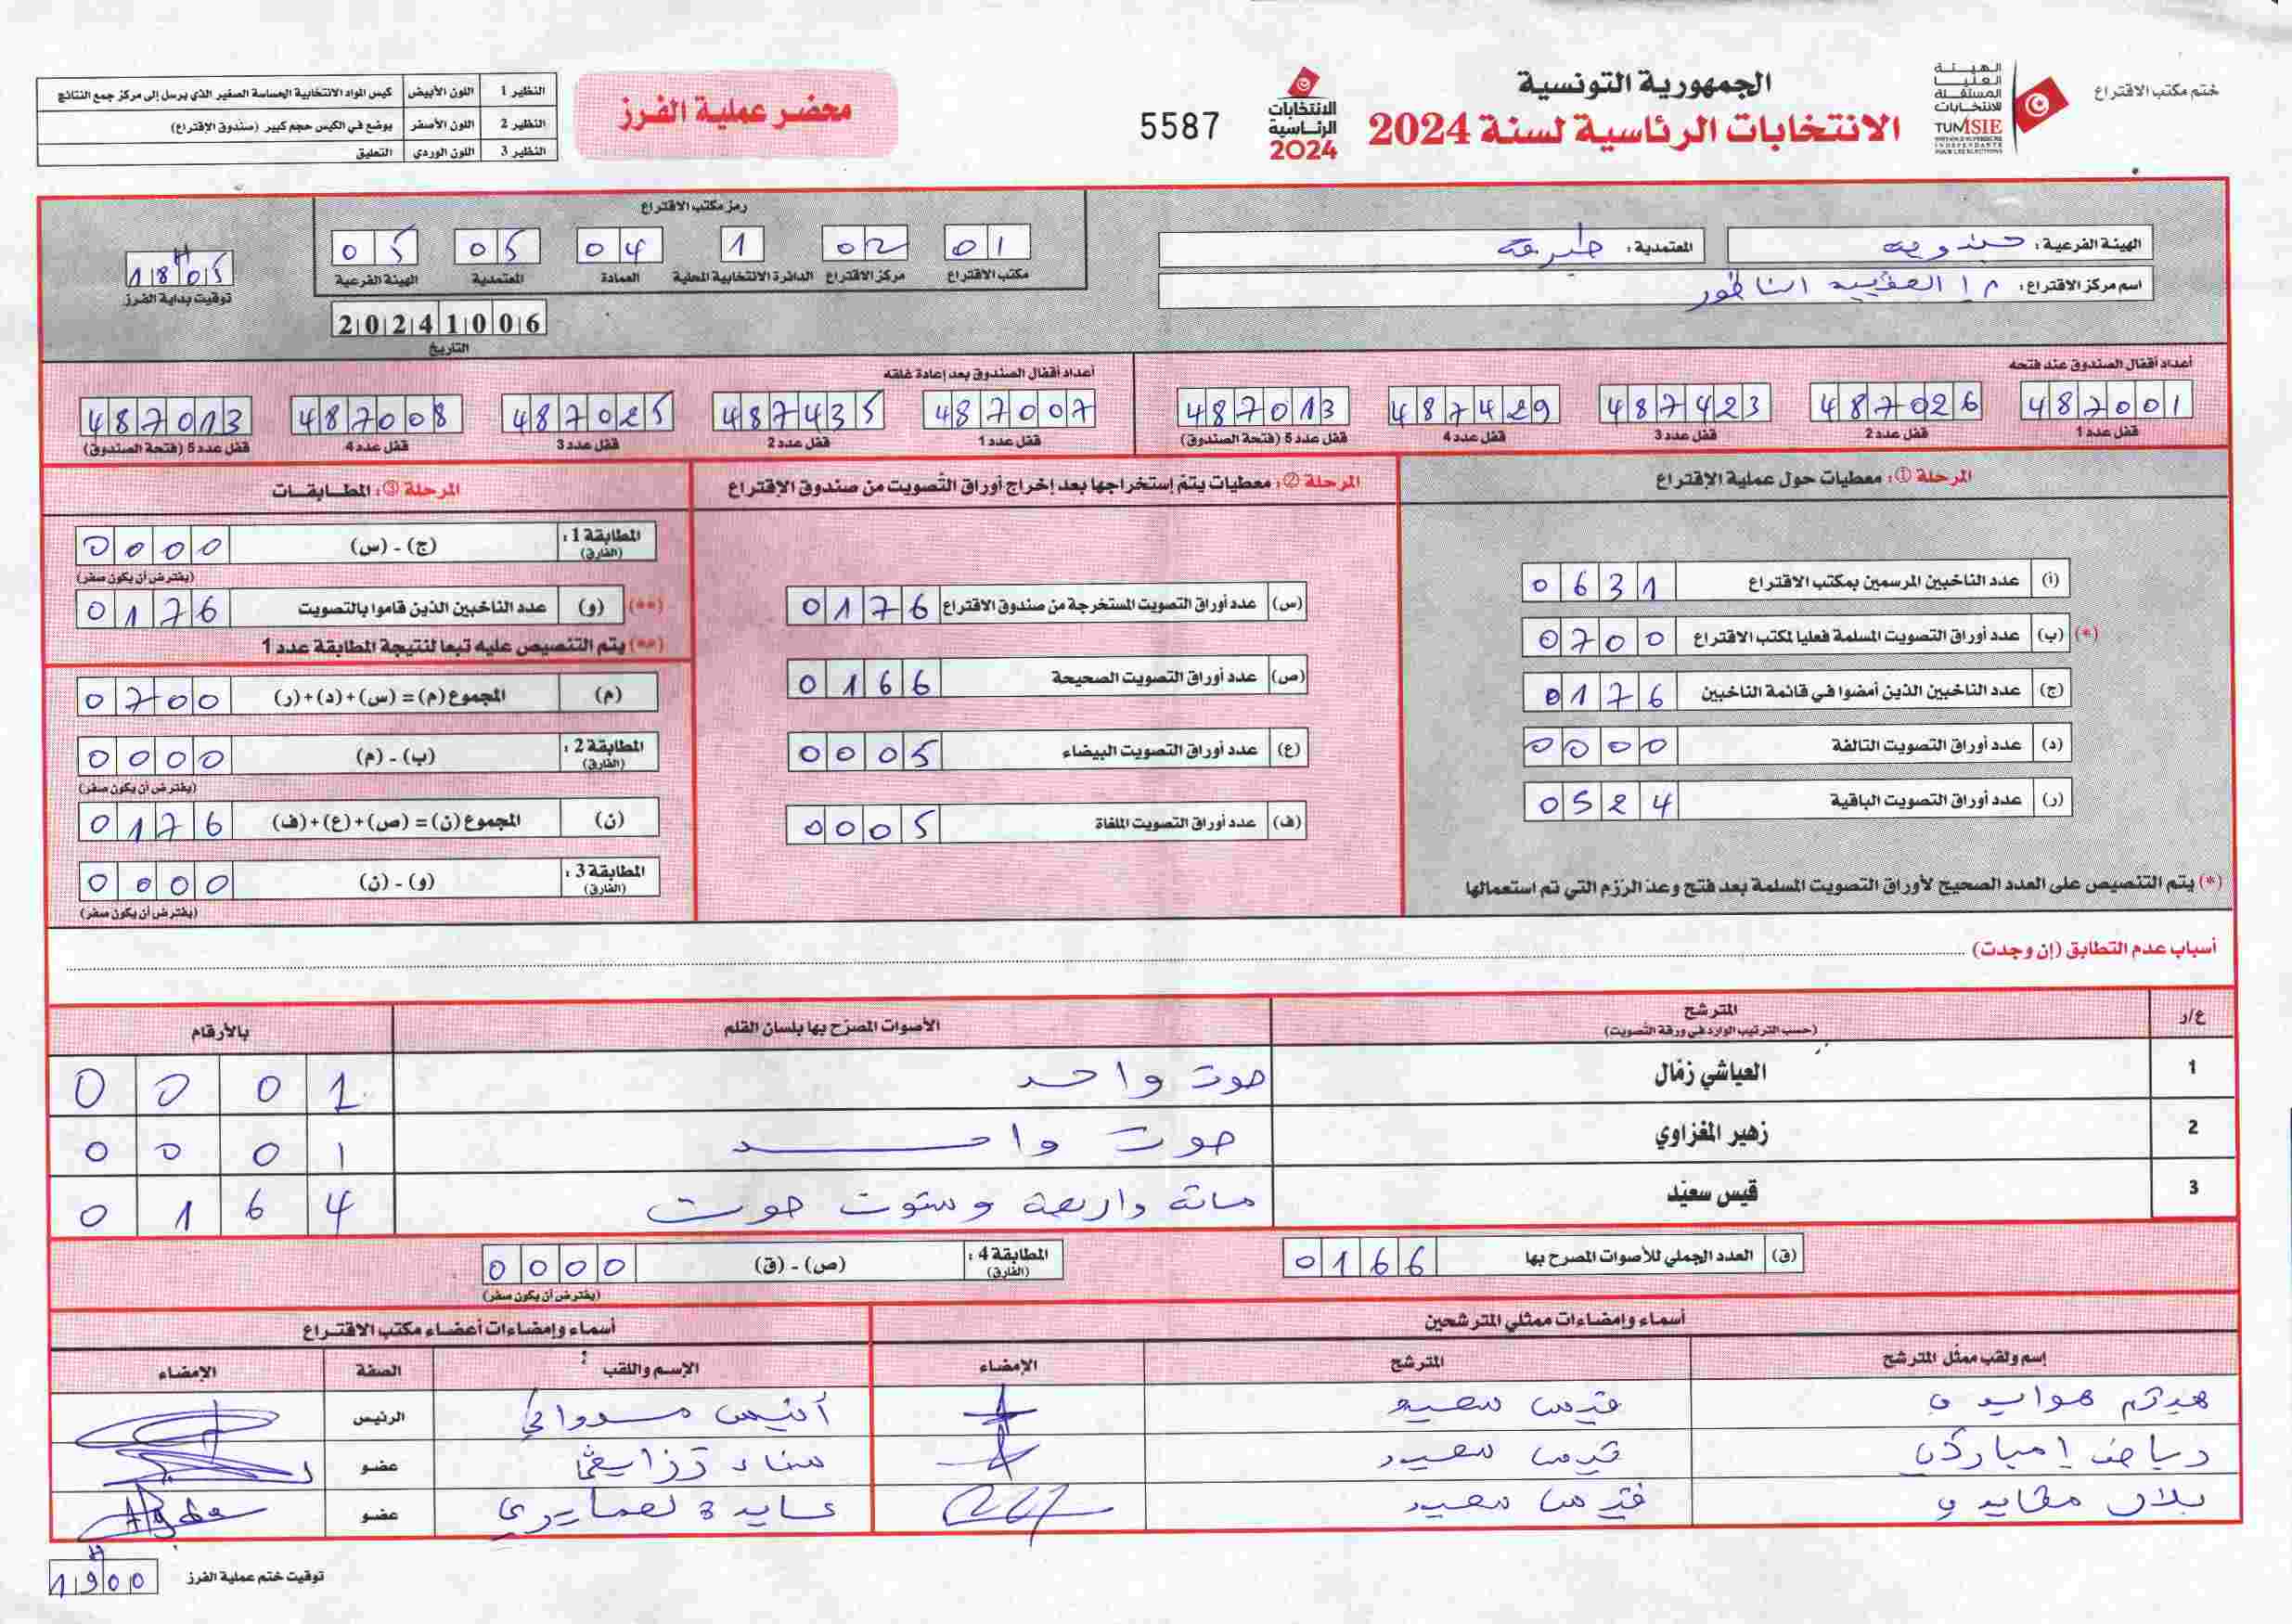 ختم مكتب الاقتراع
الهيئة
العليا
المستقلة
للانتخابات
TUNISIE
INSTANCE SUPÉRIEURE
INDÉPENDANTE
POUR LES ÉLECTIONS
الجمهورية التونسية
الانتخابات الرئاسية لسنة 2024
الانتخابات
الرئاسية
2024
5587
محضر عملية الفرز
النظير 1 اللون الأبيض كيس المواد الانتخابية الحساسة الصغير الذي يرسل إلى مركز جمع النتائج
النظير 2 اللون الأصفر يوضع في الكيس حجم كبير (صندوق الإقتراع)
النظير 3 اللون الوردي التعليق
الهيئة الفرعية: جندوبة المعتمدية: طبرقة
اسم مركز الاقتراع: الناظور
رمز مكتب الاقتراع
01 02 1 04 05 05
مكتب الاقتراع مركز الاقتراع الدائرة الانتخابية المحلية العمادة المعتمدية الهيئة الفرعية
20241006
التاريخ
18H05
توقيت بداية الفرز
أعداد أقفال الصندوق عند فتحه
487001 487026 487423 487429 487013
قفل عدد 1 قفل عدد 2 قفل عدد 3 قفل عدد 4 قفل عدد 5 (فتحة الصندوق)
أعداد أقفال الصندوق بعد إعادة غلقه
487007 487435 487025 487008 487013
قفل عدد 1 قفل عدد 2 قفل عدد 3 قفل عدد 4 قفل عدد 5 (فتحة الصندوق)
المرحلة ①: معطيات حول عملية الإقتراع
(أ) عدد الناخبين المرسمين بمكتب الاقتراع 0631
(*) (ب) عدد أوراق التصويت المسلمة فعليا لمكتب الاقتراع 0700
(ج) عدد الناخبين الذين أمضوا في قائمة الناخبين 0176
(د) عدد أوراق التصويت التالفة 0000
(ر) عدد أوراق التصويت الباقية 0524
(*) يتم التنصيص على العدد الصحيح لأوراق التصويت المسلمة بعد فتح وعد الرزم التي تم استعمالها
المرحلة ②: معطيات يتم إستخراجها بعد إخراج أوراق التصويت من صندوق الإقتراع
(س) عدد أوراق التصويت المستخرجة من صندوق الاقتراع 0176
(ص) عدد أوراق التصويت الصحيحة 0166
(ع) عدد أوراق التصويت البيضاء 0005
(ف) عدد أوراق التصويت الملغاة 0005
المرحلة ③: المطابقات
المطابقة 1: (الفارق) (ج) - (س) 0000
(يفترض أن يكون صفر)
(**) (و) عدد الناخبين الذين قاموا بالتصويت 0176
(**) يتم التنصيص عليه تبعا لنتيجة المطابقة عدد 1
(م) المجموع (م) = (س) + (د) + (ر) 0700
المطابقة 2: (الفارق) (ب) - (م) 0000
(يفترض أن يكون صفر)
(ن) المجموع (ن) = (ص) + (ع) + (ف) 0176
المطابقة 3: (الفارق) (و) - (ن) 0000
(يفترض أن يكون صفر)
أسباب عدم التطابق (إن وجدت)
ع/ر المترشح الأصوات المصرح بها بلسان القلم بالأرقام
(حسب الترتيب الوارد في ورقة التصويت)
1 العياشي زمّال صوت واحد 0001
2 زهير المغزاوي صوت واحد 0001
3 قيس سعيّد مائة واربعة وستون صوت 0164
(ق) العدد الجملي للأصوات المصرح بها 0166
المطابقة 4: (الفارق) (ص) - (ق) 0000
(يفترض أن يكون صفر)
أسماء وإمضاءات ممثلي المترشحين
إسم ولقب ممثل المترشح المترشح الإمضاء
هيثم هوايدي قيس سعيد
رياض امباركي قيس سعيد
بلال قيس سعيد
أسماء وإمضاءات أعضاء مكتب الاقتراع
الإسم واللقب الصفة الإمضاء
أنيس الرئيس
سناء عضو
عايدة لعمايري عضو
توقيت ختم عملية الفرز 19H00